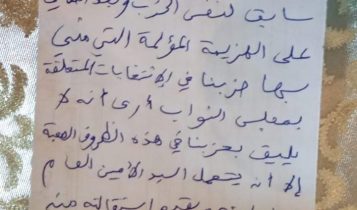 سابق لنفس الحزب و
على الهزيمة المؤلمة التي مني
بها حزبنا في الإنتخابات المتعلقة
بمجلس النواب أرى أنه لا
يليق بحزبنا في هذه الظروف الصعبة
إلا أن يتحمل السيد الأمين العام
استقالته منه